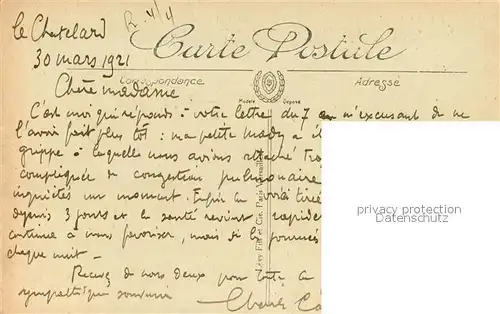 le Chatelard
R. 4/4
Carte Postale
30 mars 1921
Correspondance
Adresse
Chère madame
Modèle Déposé
C'est moi qui réponds à votre lettre du 7 en m'excusant de ne
l'avoir fait plus tôt : ma petite Mady a
grippe à laquelle nous avions attaché
compliquée de congestion pulmonaire
inquiétés un moment. Enfin la voici tirée
depuis 3 jours et la santé revient rapide
continue à nous favoriser, mais si les
chaque nuit -
Recevez de nous deux pour toute la
sympathique souvenir
Lévy Fils et Cie, Paris
privacy protection
Datenschutz